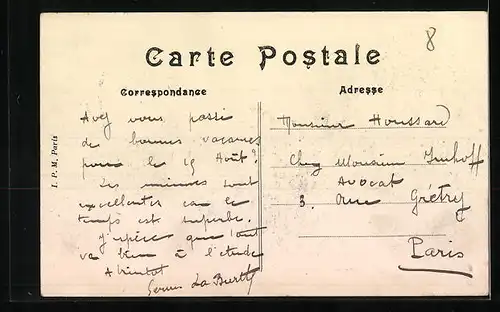 8
Carte Postale
Correspondance
Adresse
I. P. M. Paris
Avez vous passé
de bonnes vacances
pour le 15 Août ?
Les miennes sont
excellentes car le
temps est superbe.
J'espère que tout
va bien à l'étude
A bientôt
Monsieur Houssard
Chez Monsieur Imhoff
Avocat
3. rue Grétry
Paris